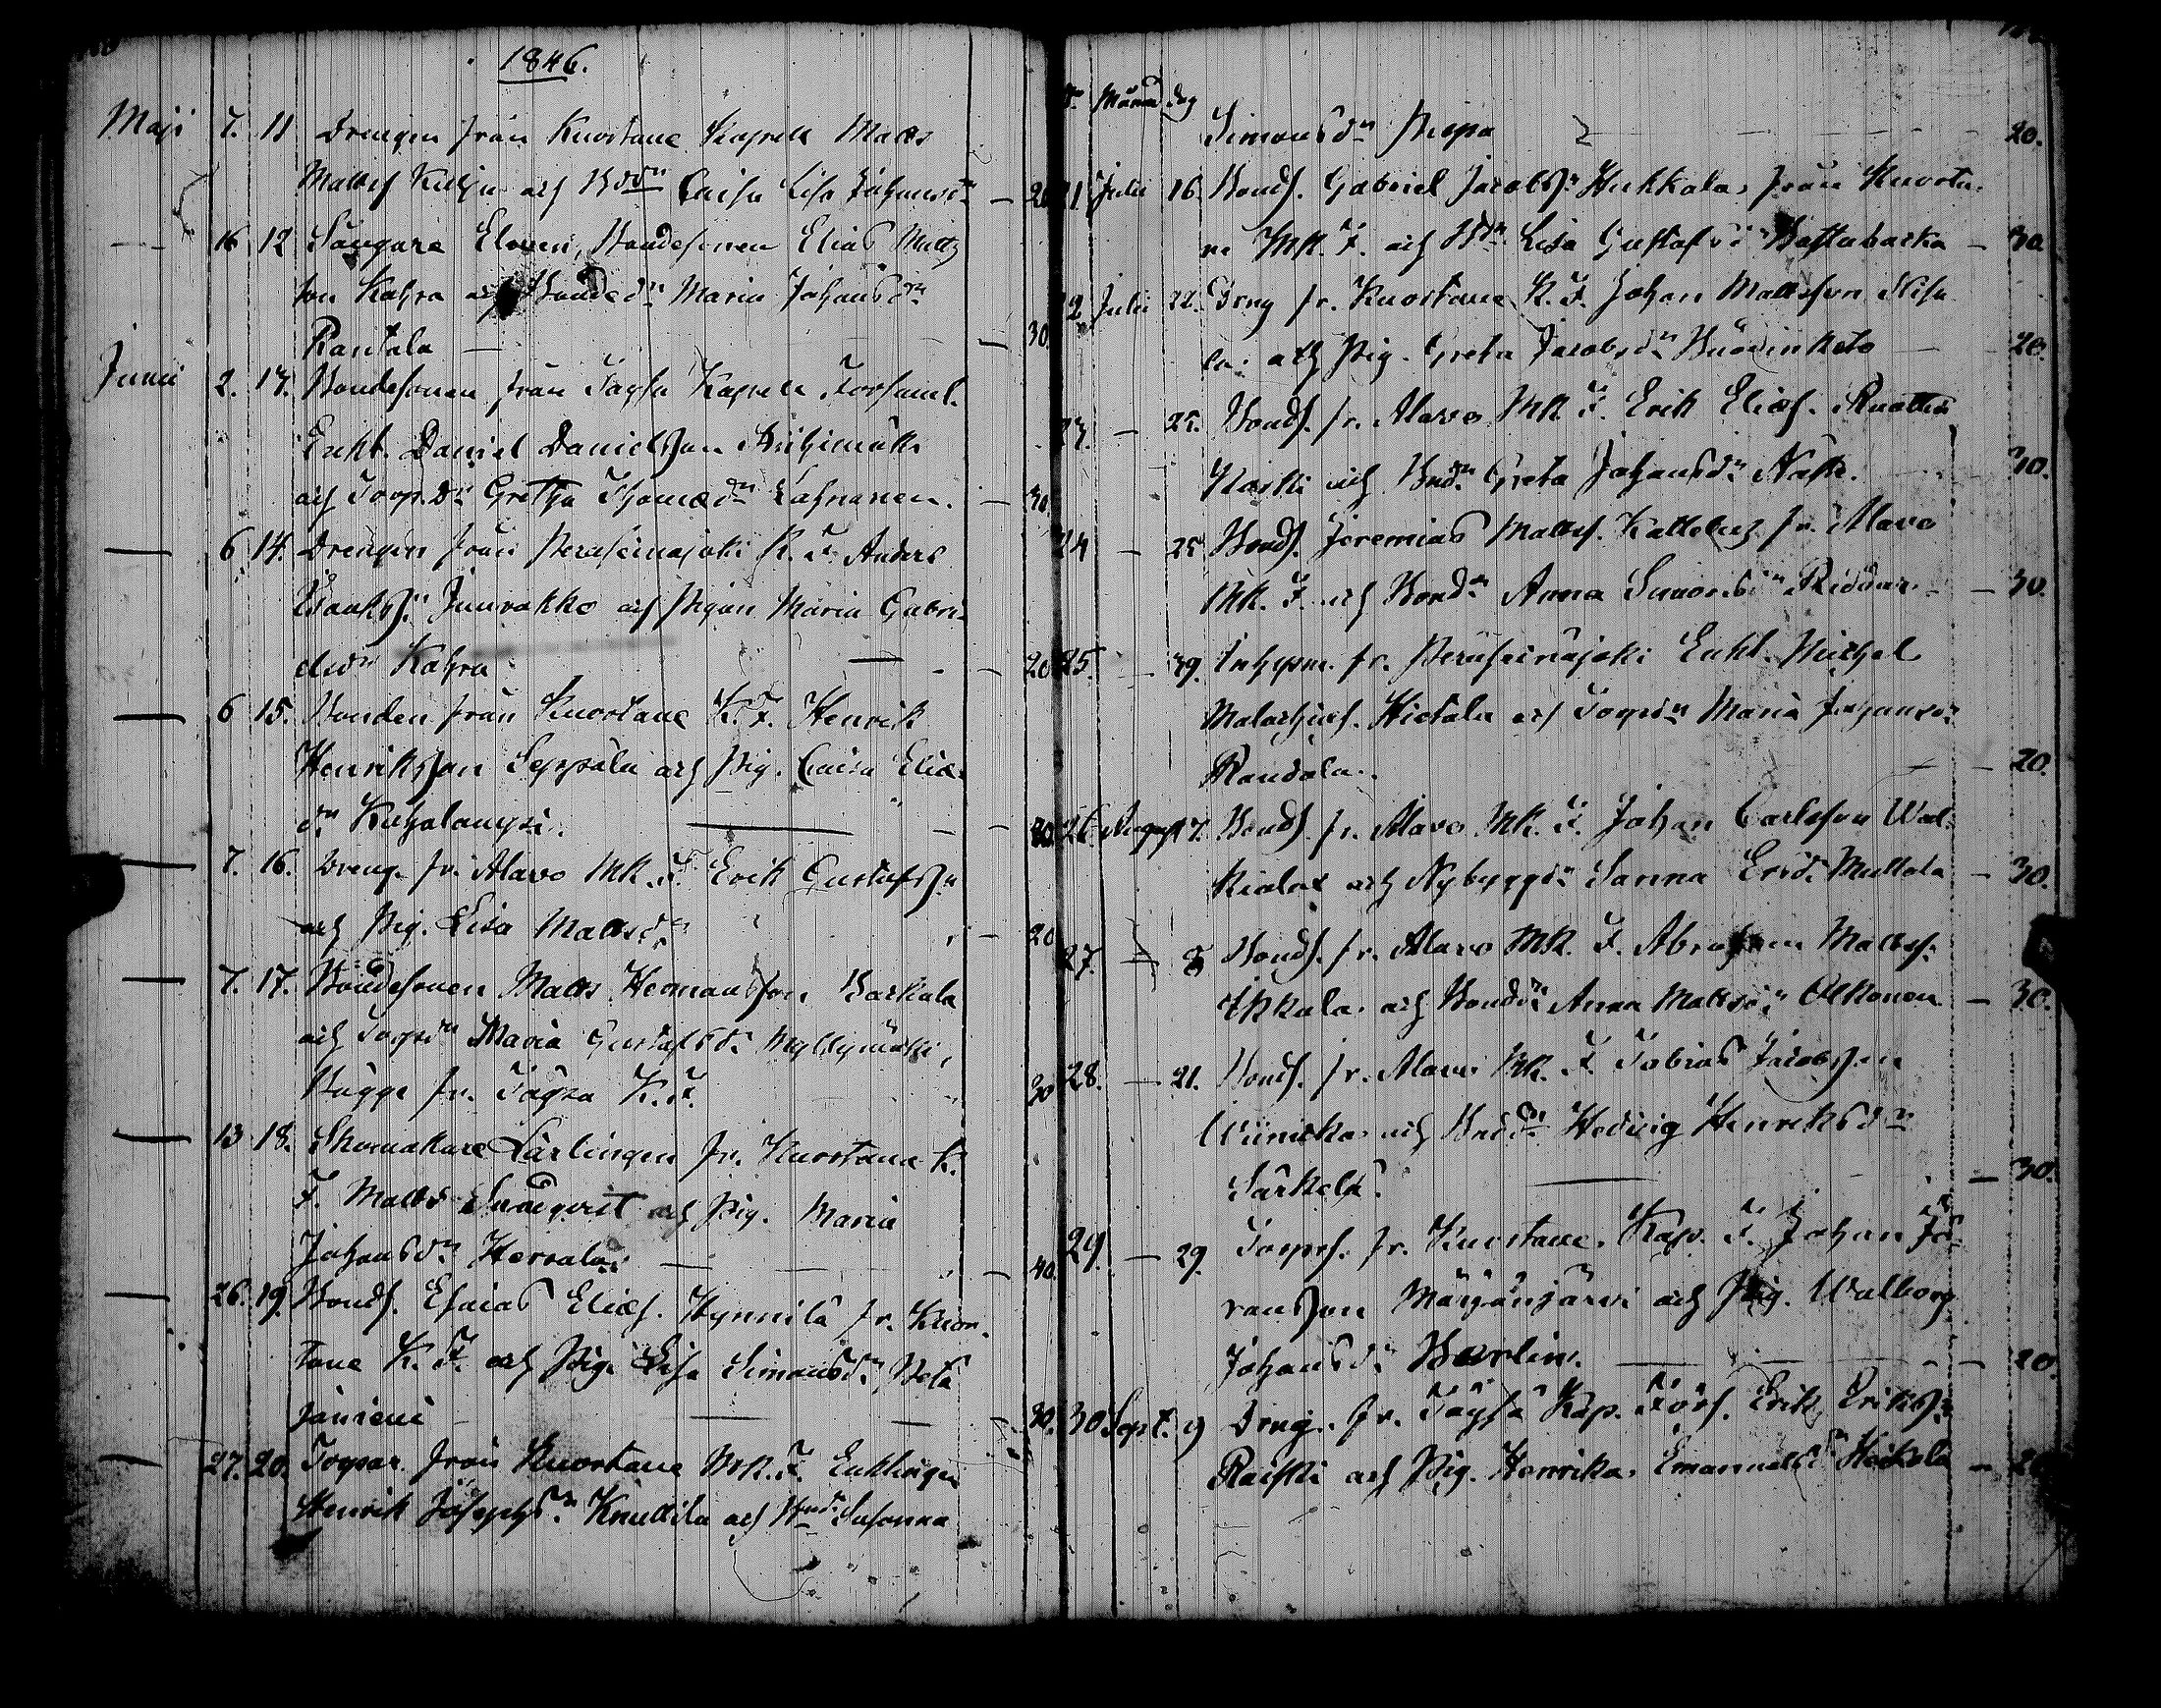 1846.
Maji 7. 11 Drengen från Kuortane Kapell Matts
Mattss. och Bdr Caisa Lisa Johansdr — 20
— 16 12 Sångare Eleven, Bondesonen Elias Matts
son Kahra och Bondedr Maria Johansdr
Rantala — — 30.
Junii 2. 13. Bondesonen från Töysä Kapell Församl.
Enkl. Daniel Danielsson
och Torp.dr Gretha Thomædr Lahnanen. — 30.
— 6 14. Drengen från Peräseinäjoki K. F. Anders
Isaakss: Juurakko och Pigan Maria Gabri-
elsdr Kahra — — 20
— 6 15. Bonden från Kuortane K. F. Henrik
Henriksson Seppälä och Pig. Caisa Eliæ
dr Kuhalampi. — 30.
— 7. 16. Dreng. fr. Alavo MK. F. Erik Gustafsson
och Pig. Lisa Mattsdr — 20
— 7. 17. Bondesonen Matts Hermansson Barkala
och Torpdr Maria Gustafsdr Myllymäki,
Bägge fr. Töysä K. F. 30
— 13 18. Skomakare Lärlingen fr. Kuortane K.
F. Matts och Pig. Maria
Johansdr Herrala. — — 40.
— 26. 19. Bonds. Esaias Eliæs. Hynnilä fr. Kuor-
tane K. F. och Pig. Lisa Simonsdr Petä
jäniemi — — 30.
— 27. 20. Torpar. från Kuortane MK. F. Enklingen
Henrik Josephs. Knuuttila och Susanna
Månad dag
Simonsdr Pispa — 20.
21. Julii 16. Bonds. Gabriel Jacobss. Huhkala, från Kuorta-
ne MK. F. och Bdr. Lisa Gustafsdr Bastubacka — 30
22 Julii 22. Dreng fr. Kuortane K. F. Johan Mattsson Nisu
la: och Pig. Greta Jacobsdr — 20.
23. — 25. Bonds. fr. Alavo MK. F. Erik Eliæs.
Kaski och Bdr. Greta Johansdr — 30.
24 — 25 Bonds. Jeremias Mattss. fr. Alavo
MK. F. och Bondr Anna Simonsdr — 30.
25. — 29. Inhysn. fr. Peräseinäjoki Enkl. Michel
Malachias. Hietala och Torpdr Maria Johansdr
Randala. — 20.
26. August 7. Bonds. fr. Alavo MK. F. Johan Carlsson Wal-
kiala och Nybyggdr Sanna Ersdr Mullola — 30.
27. — 8 Bonds. fr. Alavo MK. F. Abraham Mattss.
Ekkala och Bonddr Anna Mattsdr Olkonen — 30.
28. — 21. Bonds. fr. Alavo MK. F. Tobias Jacobsson
och Bndr Hedvig Henriksdr
Särkelä. — 30.
29. — 29. Torpss. fr. Kuortane. Kap. F. Johan Jö-
ransson Mäyränjärvi och Pig. Walborg
Johansdr Berlin. — 20.
30 Sept. 9 Dreng. fr. Töysä Kap. Förs. Erik Erikss:
Raiski och Pig. Henrika. Emanuelsdr Heikkilä — 20